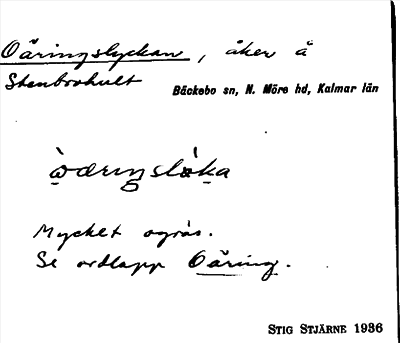 Oäringslyckan, åker å
Stenbohult
Bäckebo sn, N. Möre hd, Kalmar län
Mycket ogräs.
Se ordlapp Oäring.
STIG STJÄRNE 1936